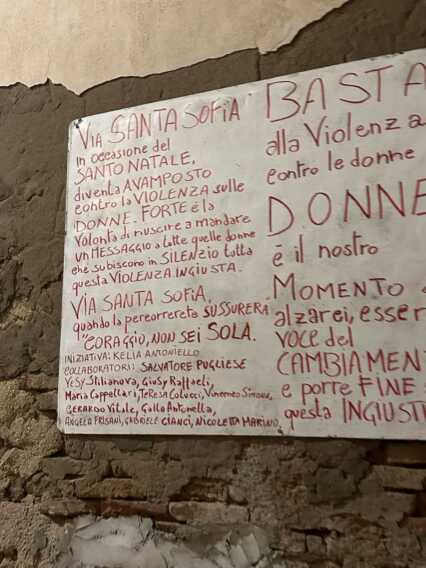 VIA SANTA SOFIA
in occasione del
SANTO NATALE,
diventa AVAMPOSTO
contro la VIOLENZA sulle
DONNE. FORTE è la
Volontà di riuscire a mandare
un MESSAGGIO a tutte quelle donne
che subiscono in SILENZIO tutta
questa VIOLENZA INGIUSTA.
VIA SANTA SOFIA,
quando la percorrerete SUSSURERA
"CORAGGIO, NON SEI SOLA.
INIZIATIVA: KELIA ANTONIELLO
COLLABORATORI: SALVATORE PUGLIESE
Yesy Stilianova, Giusy Raffaeli,
Maria Cappellari, Teresa Colucci, Vincenzo Simone,
GERARDO Vitale, Gallo Antonella,
ANGELO FRISANI, GABRIELE CIANCI, NICOLETTA MARINO,
BASTA
alla Violenza
contro le donne
DONNE
è il nostro
MOMENTO
alzarci, esser
VOCE del
CAMBIAMEN
e porre FINE
questa INGIUSTI